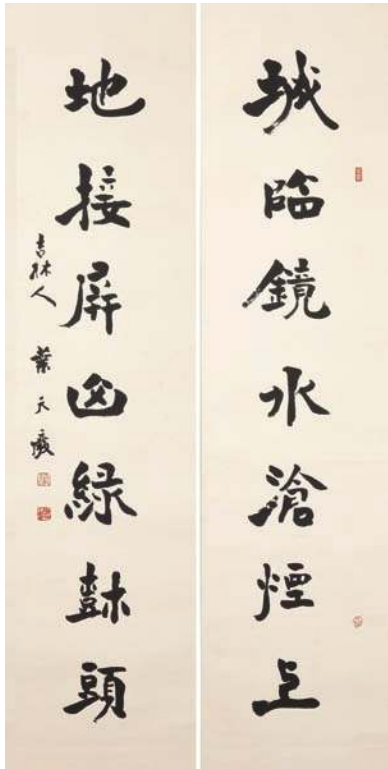 城臨鏡水滄煙上
地接屏山綠樹頭
吉林人 葉天